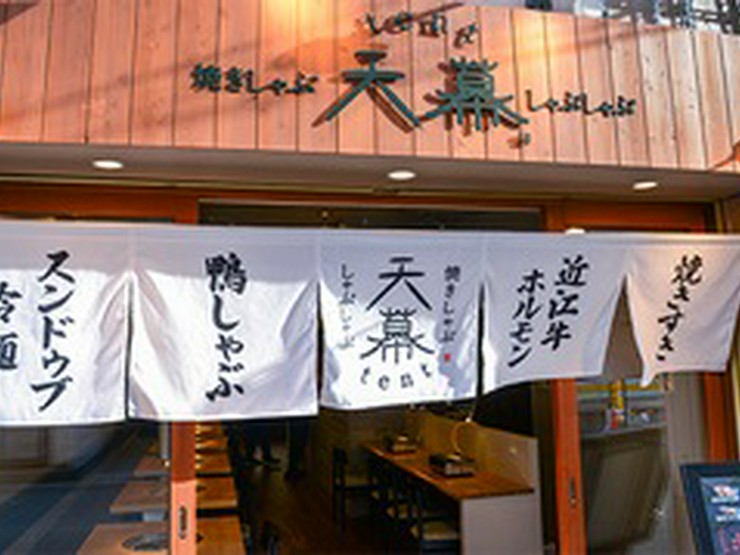 tent
焼きしゃぶ 天幕 しゃぶしゃぶ
スンドゥブ
冷麺
鴨しゃぶ
焼きしゃぶ
天幕
しゃぶしゃぶ
tent
近江牛
ホルモン
焼きすき